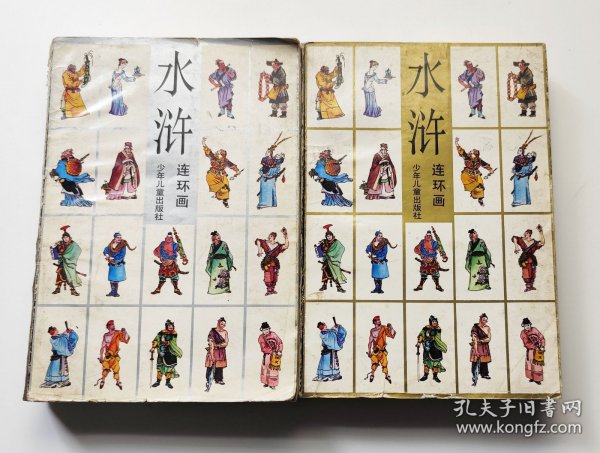 水浒
连环画
少年儿童出版社
水浒
连环画
少年儿童出版社
孔夫子旧书网
www.kongfz.com